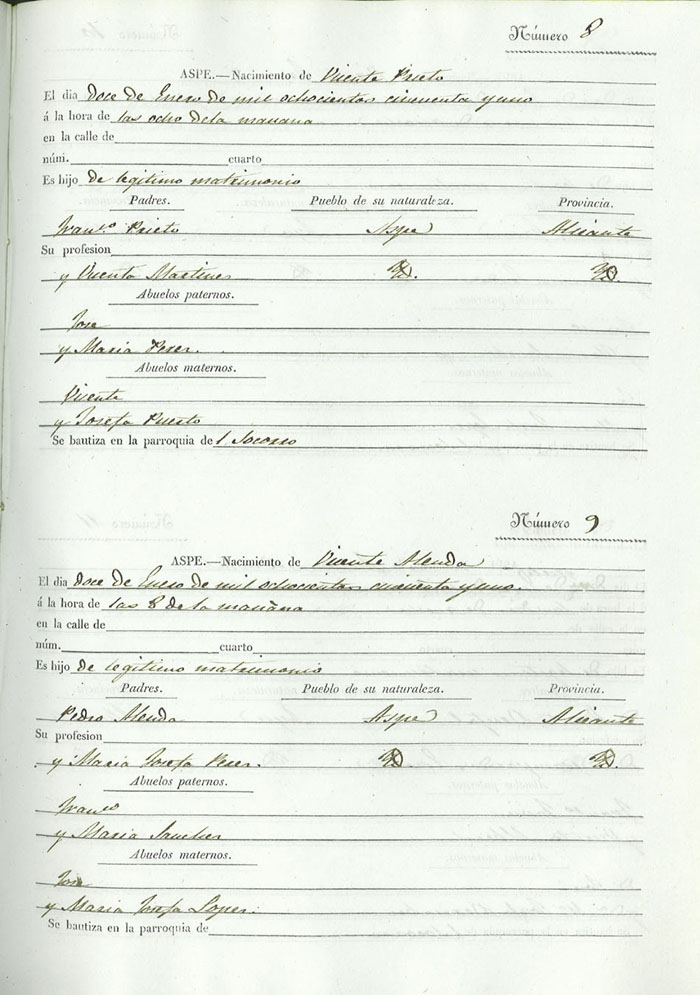 Número 8
ASPE.—Nacimiento de Vicente Prieto
El dia doce de Enero de mil ochocientos cincuenta y uno
á la hora de las ocho de la mañana
en la calle de
núm. cuarto
Es hijo de legitimo matrimonio
Padres. Pueblo de su naturaleza. Provincia.
Franco Prieto Aspe Alicante
Su profesion
y Vicenta Martinez
Abuelos paternos.
Jose
y Maria Perez.
Abuelos maternos.
Vicente
y Josefa Puerto
Se bautiza en la parroquia de l Socorro
Número 9
ASPE.—Nacimiento de Vicente Alenda
El dia doce de Enero de mil ochocientos cincuenta y uno.
á la hora de las 8 de la mañana
en la calle de
núm. cuarto
Es hijo de legitimo matrimonio
Padres. Pueblo de su naturaleza. Provincia.
Pedro Alenda Aspe Alicante
Su profesion
y Maria Josefa Perez.
Abuelos paternos.
Franco
y Maria Sanchez
Abuelos maternos.
Jose
y Maria Josefa Lopez.
Se bautiza en la parroquia de